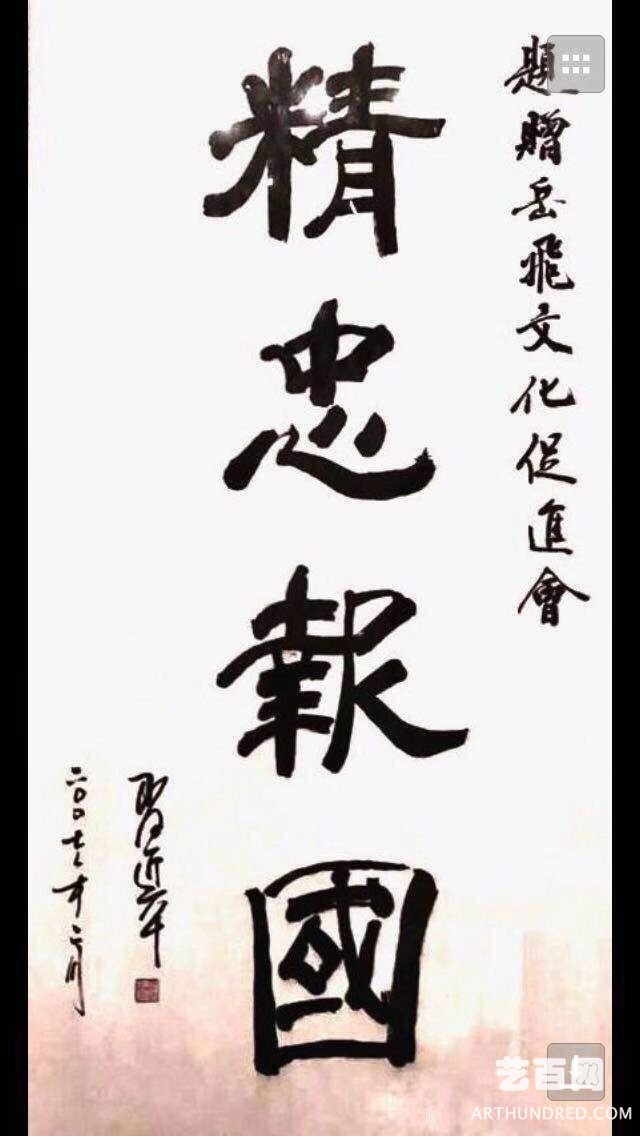 題贈岳飛文化促進會
精忠報國
習近平
二〇〇七年二月
艺百网
ARTHUNDRED.COM